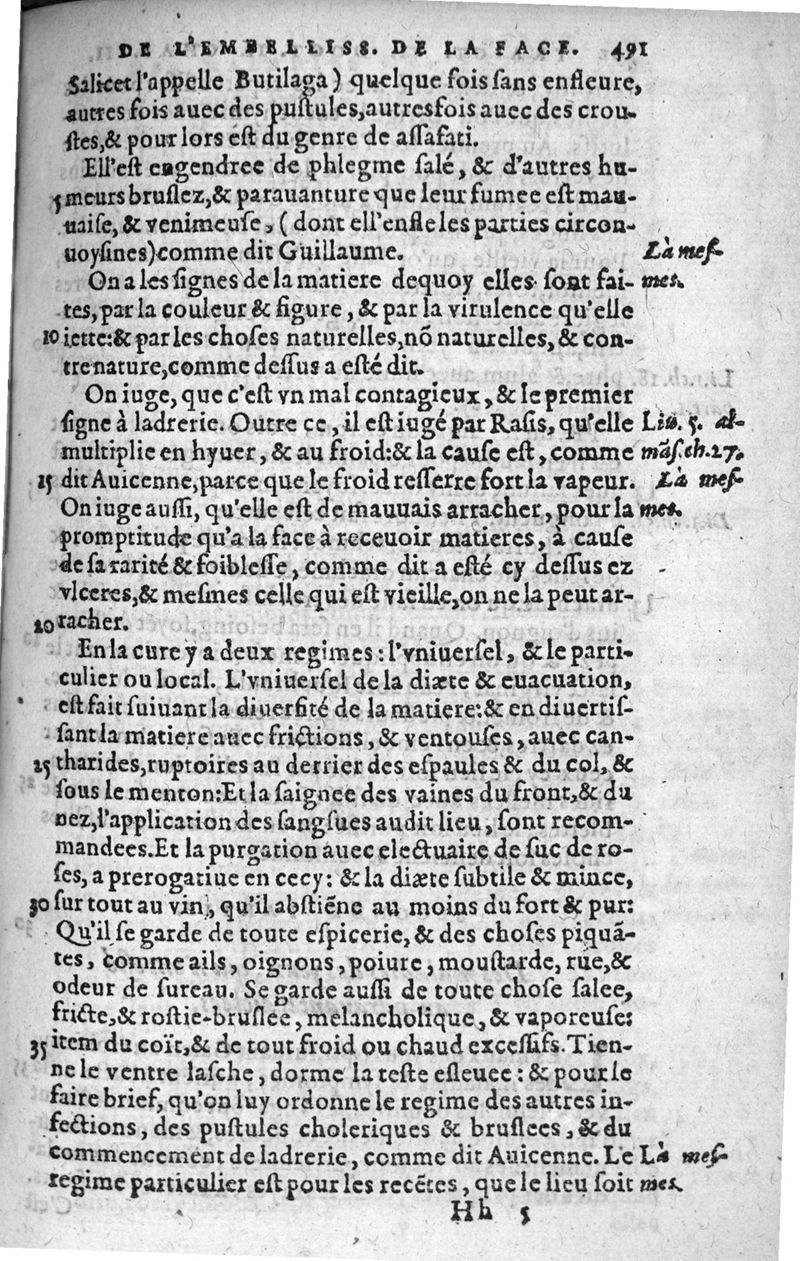 DE L'EMBELLISS. DE LA FACE. 491
Salicet l'appelle Butilaga) quelque fois sans enfleure,
autres fois auec des pustules, autresfois auec des crou-
stes, & pour lors est du genre de assafati.
Ell'est engendree de phlegme salé, & d'autres hu-
5 meurs bruslez, & parauanture que leur fumee est mau-
uaise, & venimeuse, (dont ell'enfle les parties circon-
uoysines) comme dit Guillaume. Là mes-
On a les signes de la matiere dequoy elles sont fai- mes.
tes, par la couleur & figure, & par la virulence qu'elle
10 iette: & par les choses naturelles, nõ naturelles, & con-
tre nature, comme dessus a esté dit.
On iuge, que c'est vn mal contagieux, & le premier
signe à ladrerie. Outre ce, il est iugé par Rasis, qu'elle Liu. 5. al-
multiplie en hyuer, & au froid: & la cause est, comme mãs. ch. 27.
15 dit Auicenne, parce que le froid resserre fort la vapeur. Là mes-
On iuge aussi, qu'elle est de mauuais arracher, pour la mes.
promptitude qu'a la face à receuoir matieres, à cause
de sa rarité & foiblesse, comme dit a esté cy dessus ez
vlceres, & mesmes celle qui est vieille, on ne la peut ar-
20 racher.
En la cure y a deux regimes: l'vniuersel, & le parti-
culier ou local. L'vniuersel de la diæte & euacuation,
est fait suiuant la diuersité de la matiere: & en diuertis-
sant la matiere auec frictions, & ventouses, auec can-
25 tharides, ruptoires au derrier des espaules & du col, &
sous le menton: Et la saignee des vaines du front, & du
nez, l'application des sangsues audit lieu, sont recom-
mandees. Et la purgation auec electuaire de suc de ro-
ses, a prerogatiue en cecy: & la diæte subtile & mince,
30 sur tout au vin, qu'il abstiẽne au moins du fort & pur:
Qu'il se garde de toute espicerie, & des choses piquã-
tes, comme ails, oignons, poiure, moustarde, rue, &
odeur de sureau. Se garde aussi de toute chose salee,
fricte, & rostie-bruslee, melancholique, & vaporeuse:
35 item du coït, & de tout froid ou chaud excessifs. Tien-
ne le ventre lasche, dorme la teste esleuee: & pour le
faire brief, qu'on luy ordonne le regime des autres in-
fections, des pustules choleriques & bruslees, & du
commencement de ladrerie, comme dit Auicenne. Le Là mes-
regime particulier est pour les recẽtes, que le lieu soit mes.
Hh 5